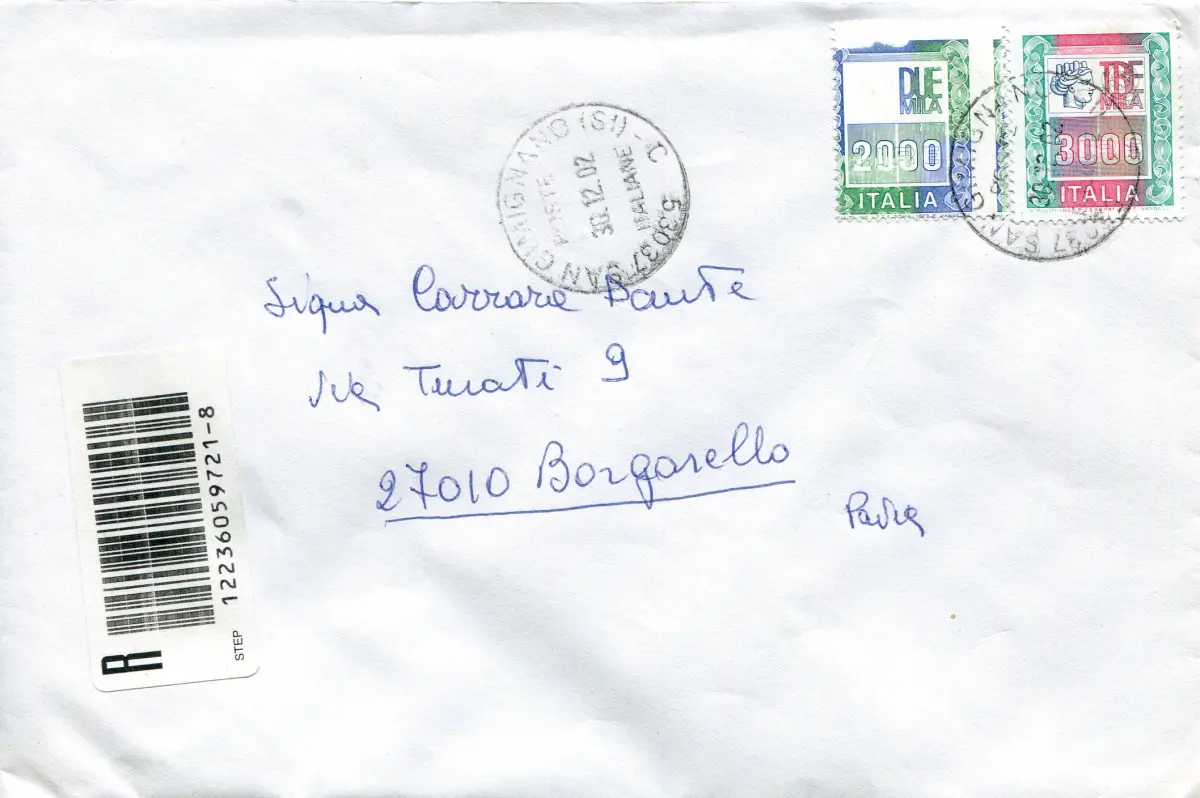 DUE
MILA
2000
ITALIA
TRE
MILA
3000
ITALIA
53037 SAN GIMIGNANO (SI) - C
POSTE
30.12.02
ITALIANE
Sigra Carrara Dante
Via Turati 9
27010 Borgarello
Pavia
R
12236059721-8
STEP